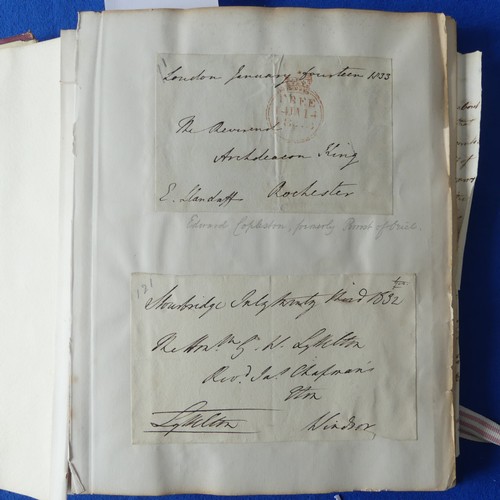 London January fourteen 1833
FREE
The Reverend
Archdeacon King
E. Llandaff Rochester
Edward Copleston, formerly Provost of Oriel.
121
Stourbridge July twenty third 1832
The Honble G. W. Lyttelton
Revd. Jas Chapman's
Eton
Lyttelton Windsor